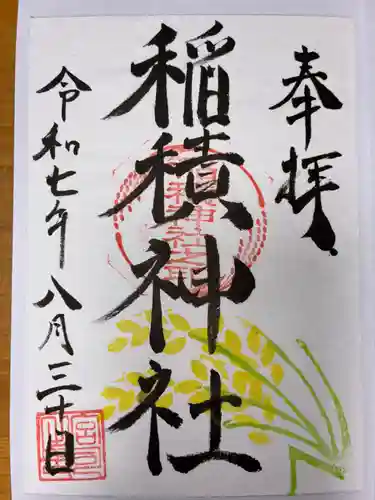 奉拝
稲積神社
令和七年八月三十日